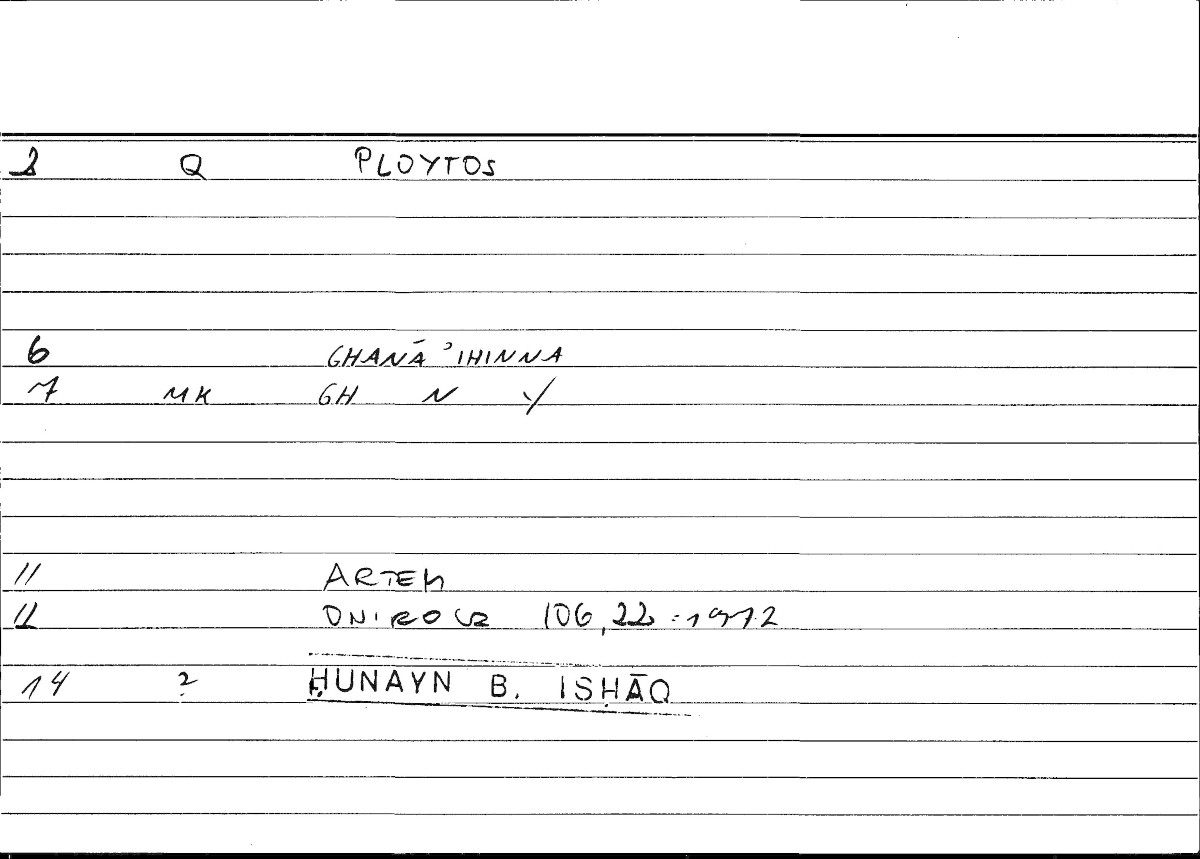 1 Q PLOYTOS
6 GHANĀʾIHINNA
7 MK GH N Y
11 ARTEM
12 ONIROCR 106,22 = 197,2
14 ? ḤUNAYN B. ISḤĀQ